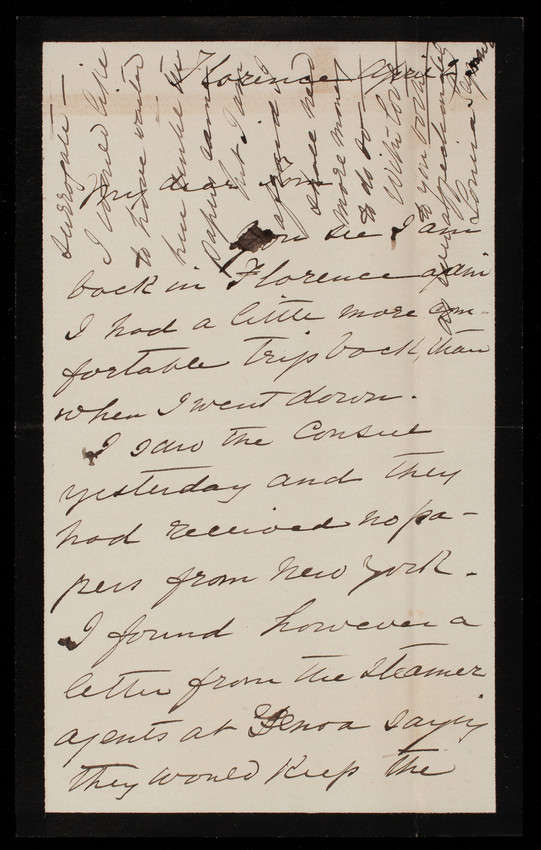 Florence April
My dear Tom
You see I am
back in Florence again
I had a little more com-
fortable trip back, than
when I went down.
I saw the Consul
yesterday and they
had received no pa-
pers from New York.
I found however a
letter from the Steamer
agents at Genoa saying
they would keep the
surrogate —
I would like
to have waited
here until the
papers came
but I am
afraid I
shall need
more money
to do so
With love
to you both
affectionately
Louisa